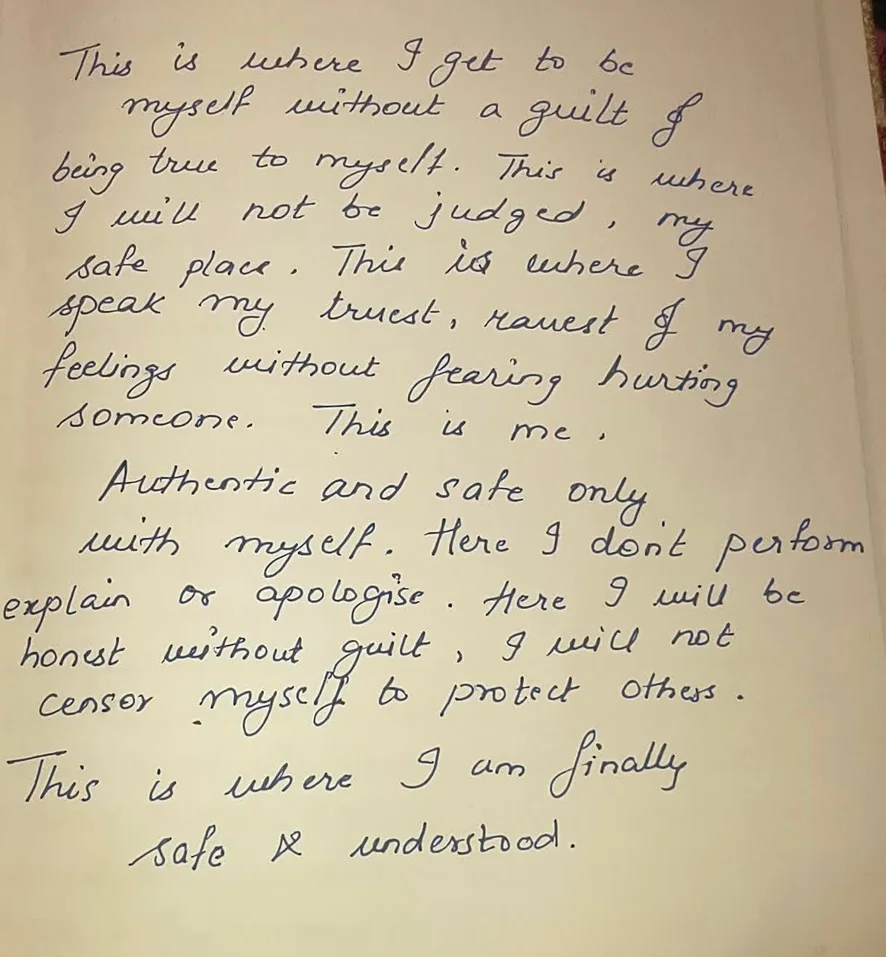 This is where I get to be
myself without a guilt of
being true to myself. This is where
I will not be judged, my
safe place. This is where I
speak my truest, rawest of my
feelings without fearing hurting
someone. This is me.
Authentic and safe only
with myself. Here I don't perform
explain or apologise. Here I will be
honest without guilt, I will not
censor myself to protect others.
This is where I am finally
safe & understood.